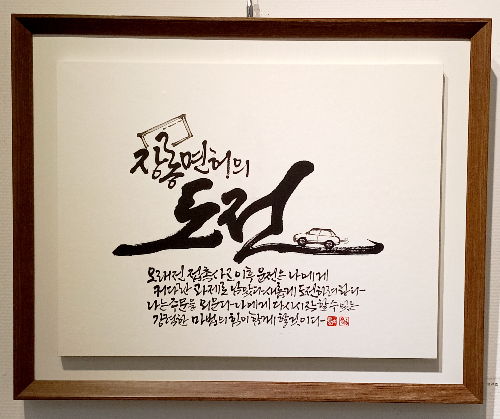 장롱면허의
도전
오래전 접촉사고 이후 운전은 나에게
커다란 과제로 남았다. 새롭게 도전하려 한다.
나는 주문을 외운다. 나에게 다시 시작할 수 있는
강력한 마법의 힘이 함께 할 것이다.